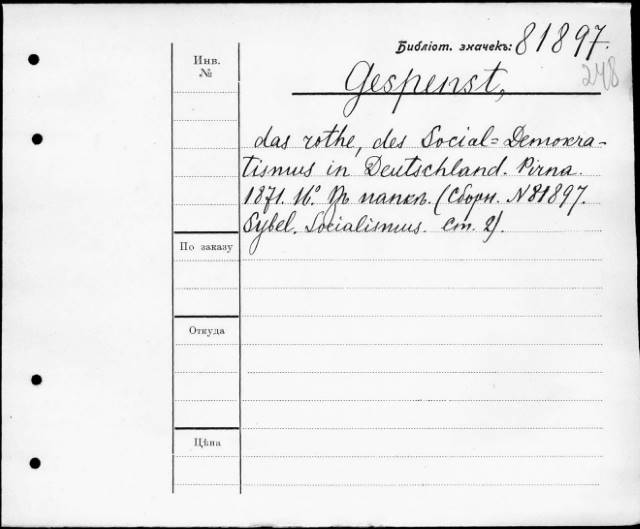 Библіот. значекъ: 81897.
248
Инв.
№
Gespenst,
das rothe, des Social=Demokra-
tismus in Deutschland. Pirna.
1871. 16° Въ папкѣ. (Сборн. N 81897.
Sybel. Socialismus. Ст. 2).
По заказу
Откуда
Цѣна